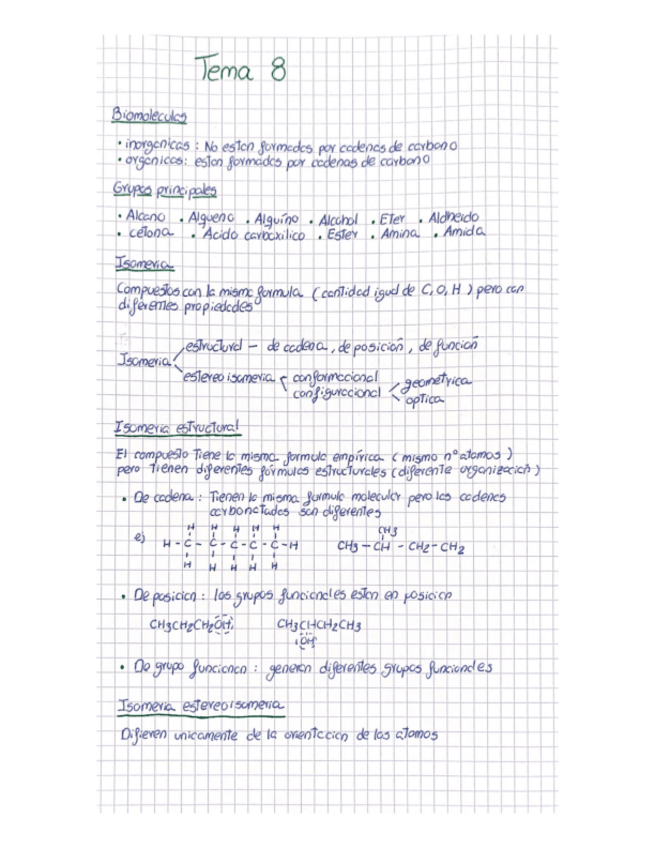 Tema 8
Biomoleculas
• inorganicas : No estan formadas por cadenas de carbono
• organicas: estan formadas por cadenas de carbono
Grupos principales
• Alcano • Algueno • Alguino • Alcohol • Eter • Aldheido
• cetona • Acido carbocxilico • Ester • Amina • Amida
Isomeria
Compuestos con la misma formula (cantidad igual de C, O, H) pero con
diferentes propiedades
Isomeria
estructural - de cadena, de posición, de función
estereoisomeria
conformacional
configuraccional
geometrica
optica
Isomeria estructural
El compuesto tiene la misma formula empírica (mismo nº atomos)
pero tienen diferentes fórmulas estructurales (diferente organización)
• De cadena : Tienen la misma formula molecular pero las cadenas
carbonatadas son diferentes
ej
H H H H H
H - C - C - C - C - C - H
H H H H H
CH3
CH3 - CH - CH2 - CH2
• De posicion : los grupos funcionales estan en posicion
CH3CH2CH2OH
CH3CHCH2CH3
OH
• De grupo funcionan : generan diferentes grupos funcionales
Isomeria estereoisomeria
Difieren unicamente de la orientacion de los atomos